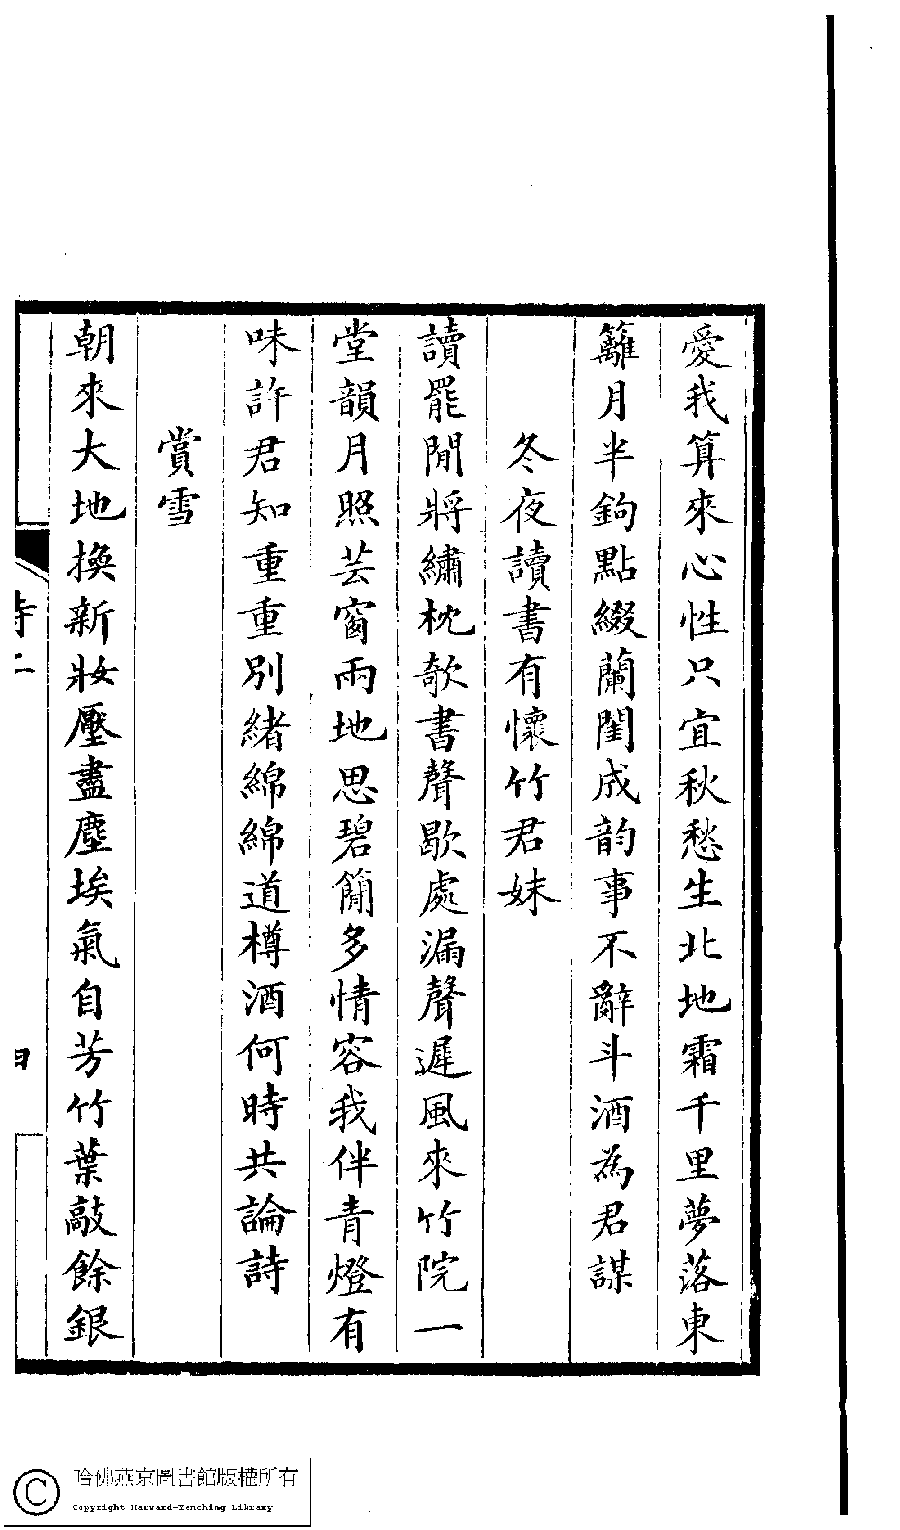 愛我算來心性只宜秋愁生北地霜千里夢落東
籬月半鉤點綴蘭閨成韵事不辭斗酒為君謀
冬夜讀書有懷竹君妹
讀罷閒將繡枕欹書聲歇處漏聲遲風來竹院一
堂韻月照芸窗兩地思碧簡多情容我伴青燈有
味許君知重重別緒綿綿道樽酒何時共論詩
賞雪
朝來大地換新妝壓盡塵埃氣自芳竹葉敲餘銀
哈佛燕京圖書館版權所有
Copyright Harvard-Yenching Library